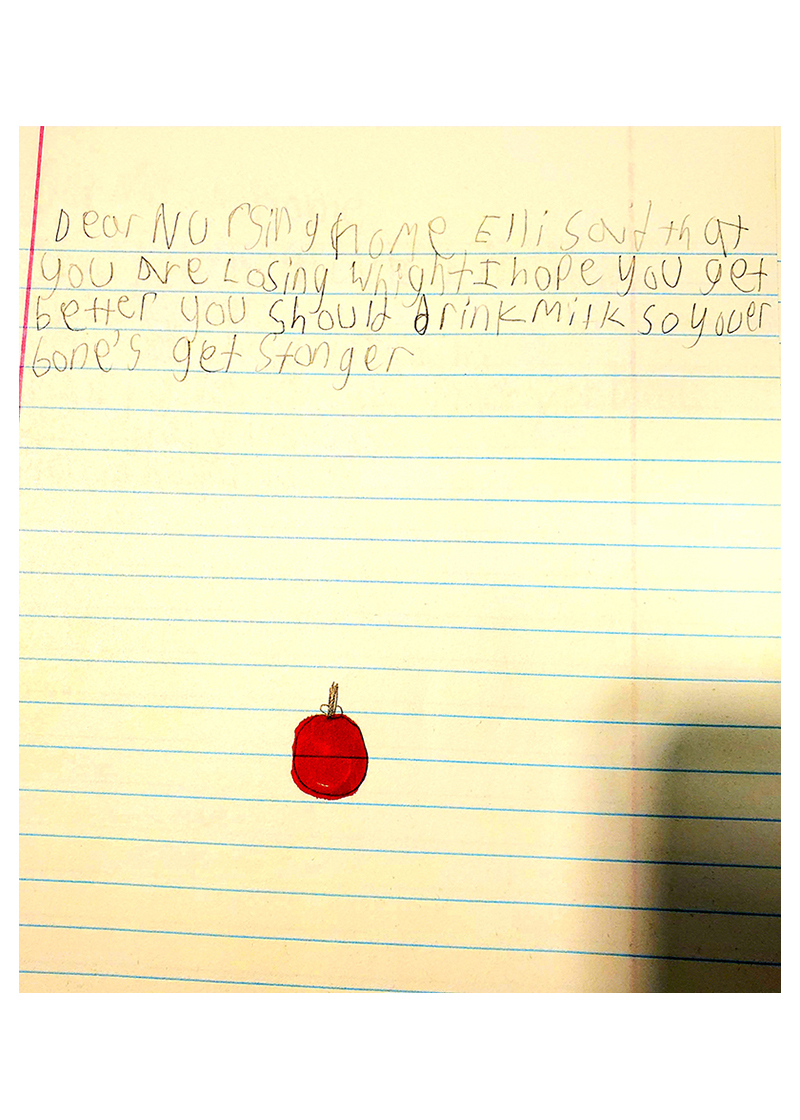 Dear NUrsing home Elli Said that
you are Losing Whight I hope you get
better you should drink milk so youer
bone's get stonger